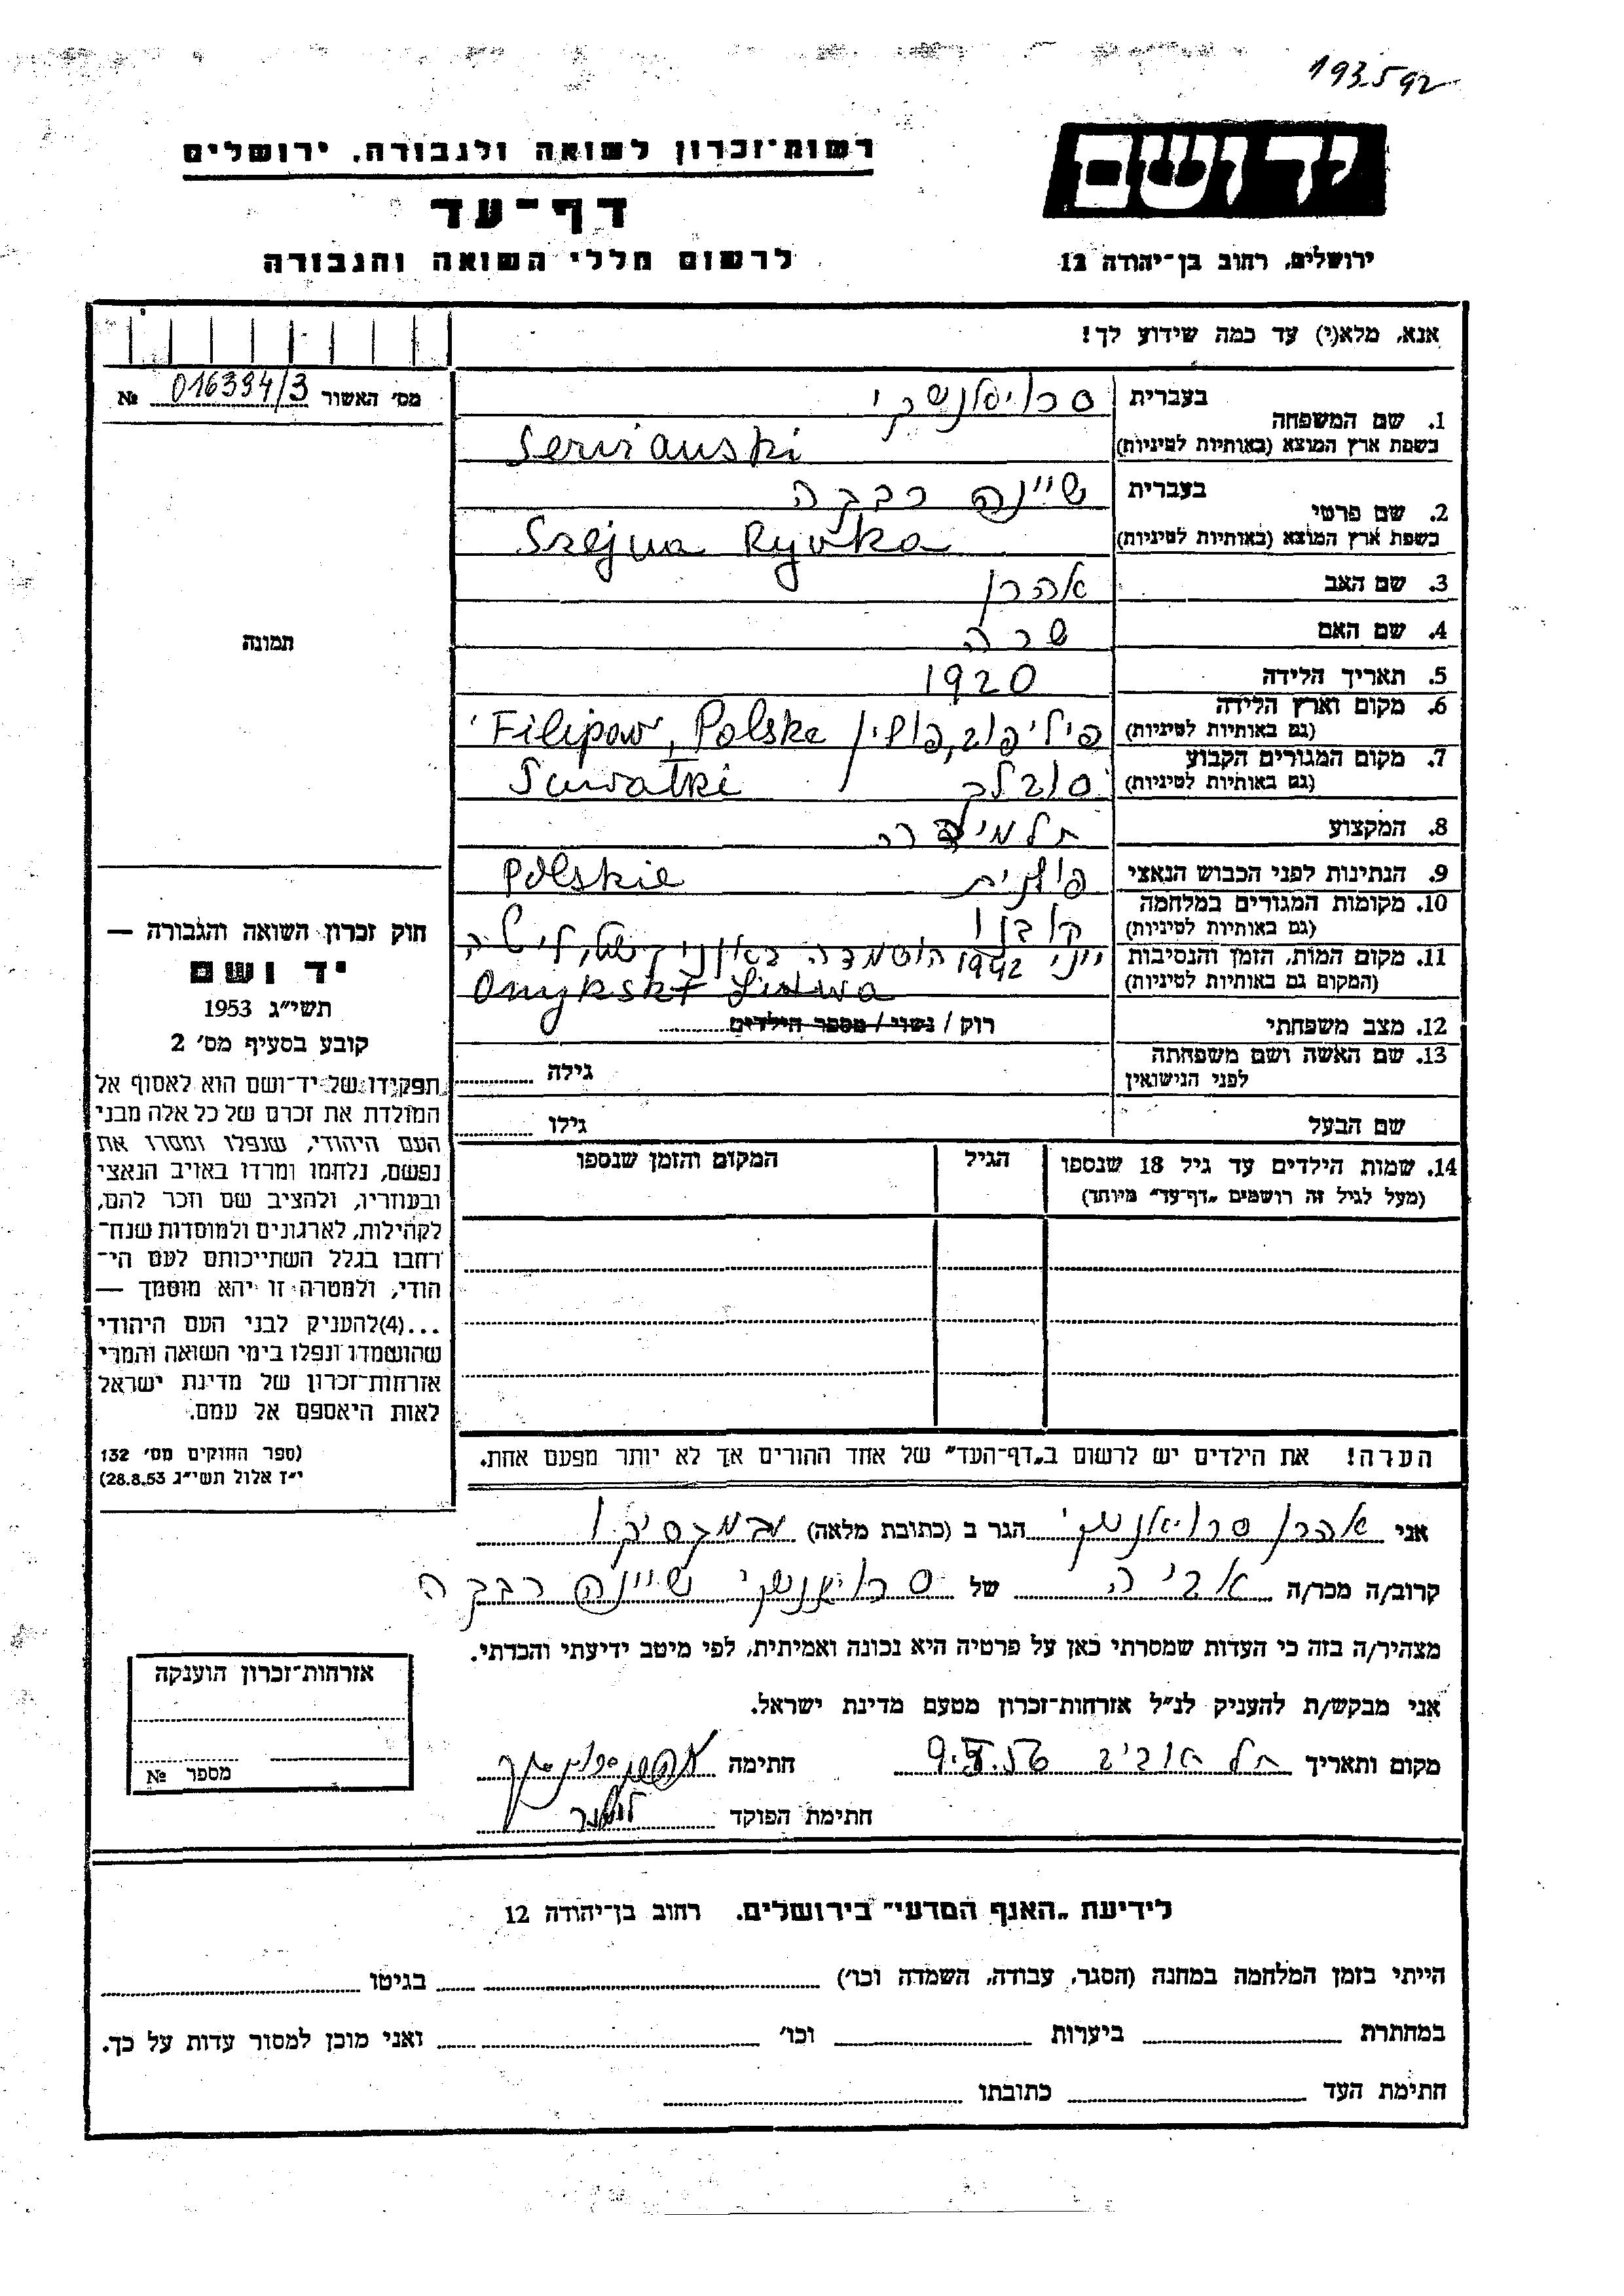 193592
רשות־זכרון לשואה ולגבורה, ירושלים
יד ושם
דף־עד
לרשום חללי השואה והגבורה
ירושלים, רחוב בן־יהודה 12
אנא, מלא(י) עד כמה שידוע לך!
מס׳ האשור 016394/3 №
1. שם המשפחה בעברית
בשפת ארץ המוצא (באותיות לטיניות) Servianski
2. שם פרטי בעברית שיינה רבקה
בשפת ארץ המוצא (באותיות לטיניות) Szejna Ryvka
3. שם האב אהרן
4. שם האם שרה
5. תאריך הלידה 1920
6. מקום וארץ הלידה (גם באותיות לטיניות) פיליפוב, פולין Filipow, Polska
7. מקום המגורים הקבוע (גם באותיות לטיניות) סובלק Suwalki
8. המקצוע תלמידה
9. הנתינות לפני הכבוש הנאצי פולנית Polskie
10. מקומות המגורים במלחמה (גם באותיות לטיניות) קובנו
11. מקום המות, הזמן והנסיבות (המקום גם באותיות לטיניות) יוני 1942 הושמדה ליטה
Litwa
12. מצב משפחתי רוק / נשוי / מספר הילדים
13. שם האשה ושם משפחתה לפני הנישואין גילה
שם הבעל גילו
14. שמות הילדים עד גיל 18 שנספו (מעל לגיל זה רושמים „דף־עד״ מיוחד) הגיל המקום והזמן שנספו
תמונה
חוק זכרון השואה והגבורה —
יד ושם
תשי״ג 1953
קובע בסעיף מס׳ 2
תפקידו של יד־ושם הוא לאסוף אל
המולדת את זכרם של כל אלה מבני
העם היהודי, שנפלו ומסרו את
נפשם, נלחמו ומרדו באויב הנאצי
ובעוזריו, ולהציב שם וזכר להם,
לקהילות, לארגונים ולמוסדות שנח־
רחבו בגלל השתייכותם לעם הי־
הודי, ולמטרה זו יהא מוסמך —
...(4)להעניק לבני העם היהודי
שהושמדו ונפלו בימי השואה והמרי
אזרחות־זכרון של מדינת ישראל
לאות היאספם אל עמם.
(ספר החוקים מס׳ 132
י״ז אלול תשי״ג 28.8.53)
הערה! את הילדים יש לרשום ב„דף־העד״ של אחד ההורים אך לא יותר מפעם אחת.
אני אהרן סרויאנסקי הגר ב (כתובת מלאה)
קרוב/ה מכר/ה אביה של סרויאנסקי שיינה רבקה
מצהיר/ה בזה כי העדות שמסרתי כאן על פרטיה היא נכונה ואמיתית, לפי מיטב ידיעתי והכרתי.
אני מבקש/ת להעניק לנ״ל אזרחות־זכרון מטעם מדינת ישראל.
מקום ותאריך תל אביב חתימה
חתימת הפוקד
אזרחות־זכרון הוענקה
מספר №
לידיעת „האגף המדעי״ בירושלים, רחוב בן־יהודה 12
הייתי בזמן המלחמה במחנה (הסגר, עבודה, השמדה וכו׳) בגיטו
במחתרת ביערות וכו׳ ואני מוכן למסור עדות על כך.
חתימת העד כתובתו